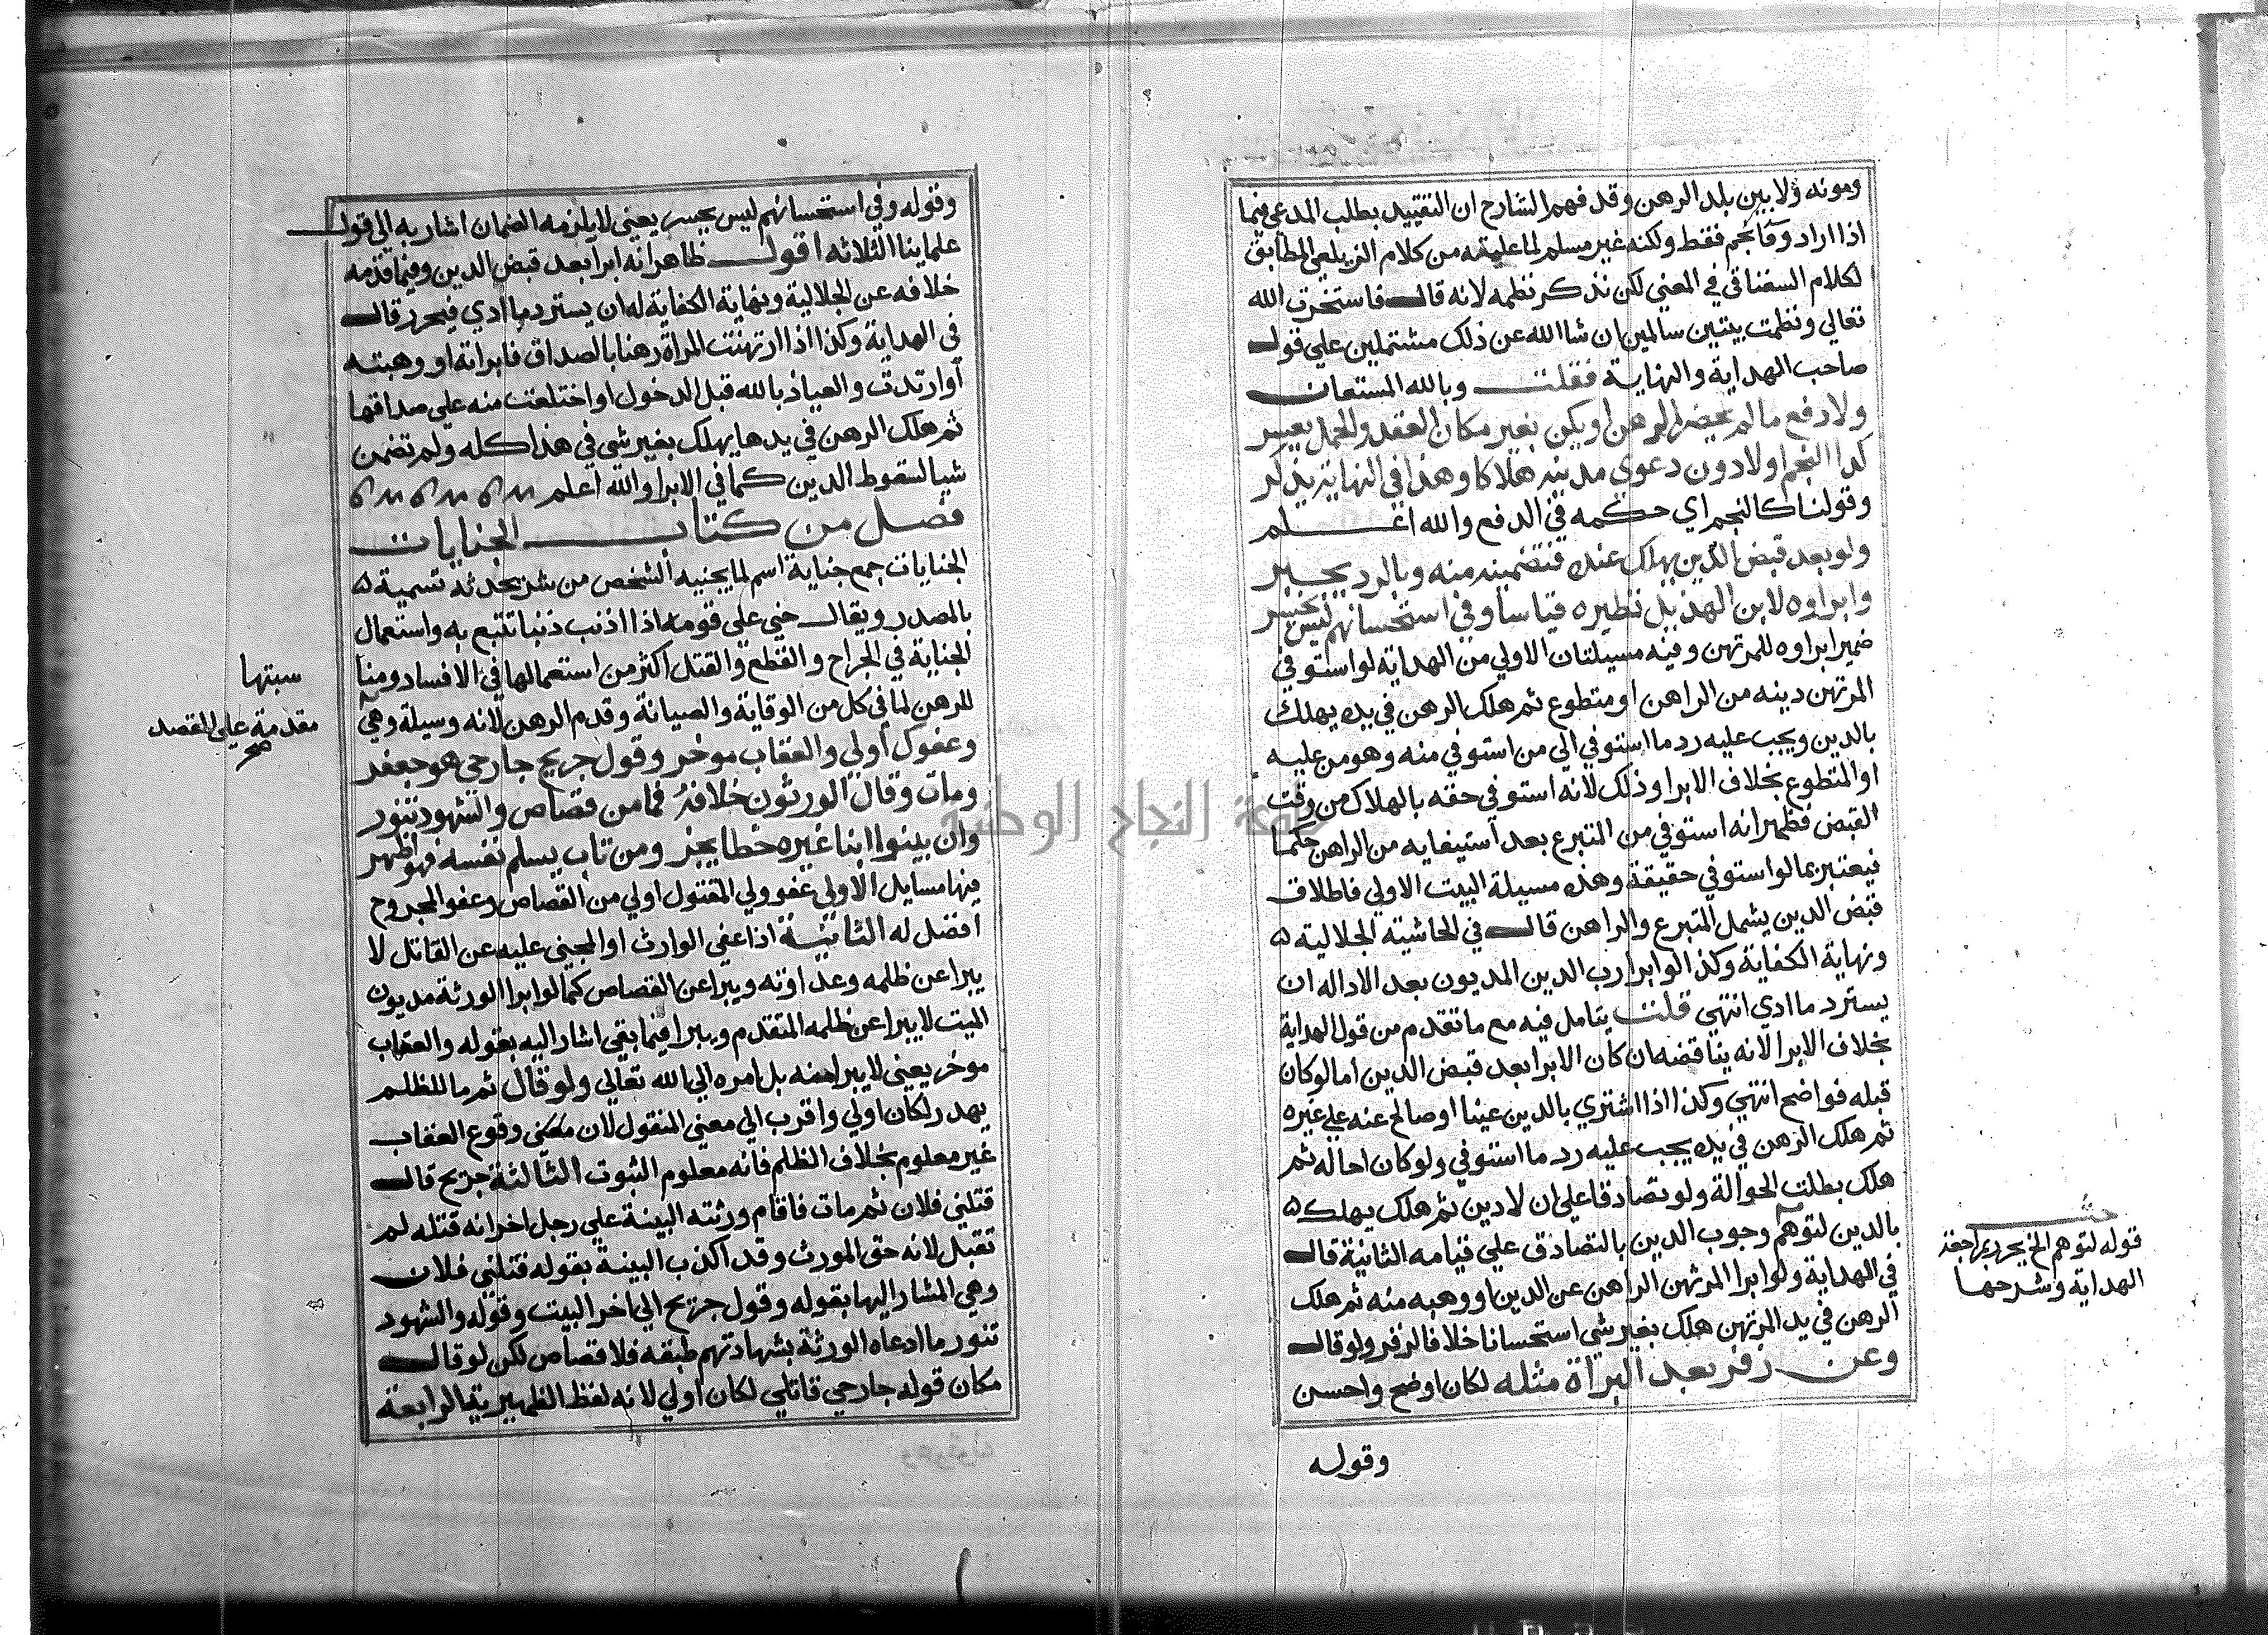 ومونه ولا بين بلد الرهن وقد فهم الشارح ان التقييد بطلب المدعي فيما
اذا اراد وفا نجم فقط ولكنه غير مسلم لما علمته من كلام الزيلعي المطابق
لكلام السغناقي في المعني لكن نذكر نظمه لانه قال فاستخرت الله
تعالي ونظمت بيتين سالمين ان شا الله عن ذلك مشتملين علي قول
صاحب الهداية والنهاية فقلت وبالله المستعان
ولا دفع ما لم يحضر الرهن او يكن بغير مكان العقد والحمل يعسر
كذا النجم اولا دون دعوي مدينه هلاكا وهذا في النهاية يذكر
وقولنا كالنجم اي حكمه في الدفع والله اعلم
ولو بعد قبض الدين يهلك عنده فتضمينه منه وبالرد يجبر
وابراوه لابن الهذيل نظيره قياسا وفي استحسانهم ليس يجبر
ضمير ابراوه للمرتهن وفيه مسيلتان الاولي من الهداية لو استوفي
المرتهن دينه من الراهن او متطوع ثم هلك الرهن في يده يهلك
بالدين ويجب عليه رد ما استوفي الي من استوفي منه وهو من عليه
او المتطوع بخلاف الابرا وذلك لانه استوفي حقه بالهلاك من وقت
القبض فظهر انه استوفي من المتبرع بعد استيفايه من الراهن حكما
فيعتبر بما لو استوفي حقيقة وهذه مسيلة البيت الاولي فاطلاق
قبض الدين يشمل المتبرع والراهن قال في الحاشية الجلالية
ونهاية الكفاية وكذا لو ابرا رب الدين المديون بعد الادا له ان
يسترد ما ادي انتهي قلت يتامل فيه مع ما تقدم من قول الهداية
بخلاف الابرا لانه يناقضه ان كان الابرا بعد قبض الدين اما لو كان
قبله فواضح انتهي وكذا اذا اشتري بالدين عينا او صالح عنه علي غيره
ثم هلك الرهن في يده يجب عليه رد ما استوفي ولو كان احاله ثم
هلك بطلت الحوالة ولو تصادقا علي ان لا دين ثم هلك يهلك
بالدين لتوهم وجوب الدين بالتصادق علي قيامه الثانية قال
في الهداية ولو ابرا المرتهن الراهن عن الدين او وهبه منه ثم هلك
الرهن في يد المرتهن هلك بغير شي استحسانا خلافا لزفر ولو قال
وعن زفر بعد البراة مثله لكان اوضح واحسن
وقوله
قوله لتوهم الخ يحرر بمراجعة
الهداية وشرحها
وقوله وفي استحسانهم ليس يجبر يعني لا يلزمه الضمان اشار به الي قول
علماينا الثلاثه اقول ظاهر انه ابرا بعد قبض الدين وفيما قدمه
خلافه عن الجلالية ونهاية الكفاية له ان يسترد ما ادي فيحرر قال
في الهداية وكذا اذا ارتهنت المراة رهنا بالصداق فابراته او وهبته
او ارتدت والعياذ بالله قبل الدخول او اختلعت منه علي صداقها
ثم هلك الرهن في يدها يهلك بغير شي في هذا كله ولم تضمن
شيا لسقوط الدين كما في الابرا والله اعلم
فصل من كتاب الجنايات
الجنايات جمع جناية اسم لما يجنيه الشخص من شر يحدثه تسمية
بالمصدر ويقال جني علي قومه اذا اذنب ذنبا تتبع به واستعمال
الجناية في الجراح والقطع والقتل اكثر من استعمالها في الافساد ومنا
للرهن لما في كل من الوقاية والصيانة وقدم الرهن لانه وسيلة وهي
وعفوك اولي والعقاب موخر وقول جريح جارحي هو جعفر
ومات وقال الوارثون خلافه فما من قصاص والشهود تنور
وان بينوا ابنا غيره خطا يجز ومن تاب يسلم نفسه فهو اظهر
فيها مسايل الاولي عفو ولي المقتول اولي من القصاص وعفو المجروح
افضل له الثانية اذا عفي الوارث او المجني عليه عن القاتل لا
يبرا عن ظلمه وعداوته ويبرا عن القصاص كما لو ابرا الورثة مديون
الميت لا يبرا عن ظلمه المتقدم ويبرا فيما بقي اشار اليه بقوله والعقاب
موخر يعني لا يبرا منه بل امره الي الله تعالي ولو قال ثم ما للظلم
يهدر لكان اولي واقرب الي معني المنقول لان معني وقوع العقاب
غير معلوم بخلاف الظلم فانه معلوم الثبوت الثالثة جريح قال
قتلني فلان ثم مات فاقام ورثته البينة علي رجل اخر انه قتله لم
تقبل لانه حق المورث وقد اكذب البينة بقوله قتلني فلان
وهي المشار اليها بقوله وقول جريح الي اخر البيت وقوله والشهود
تنور ما ادعاه الورثة بشهادتهم طبقه فلا قصاص لكن لو قال
مكان قوله جارحي قاتلي لكان اولي لانه لفظ الظهيرية الرابعة
مقدمة علي المقصد
صح